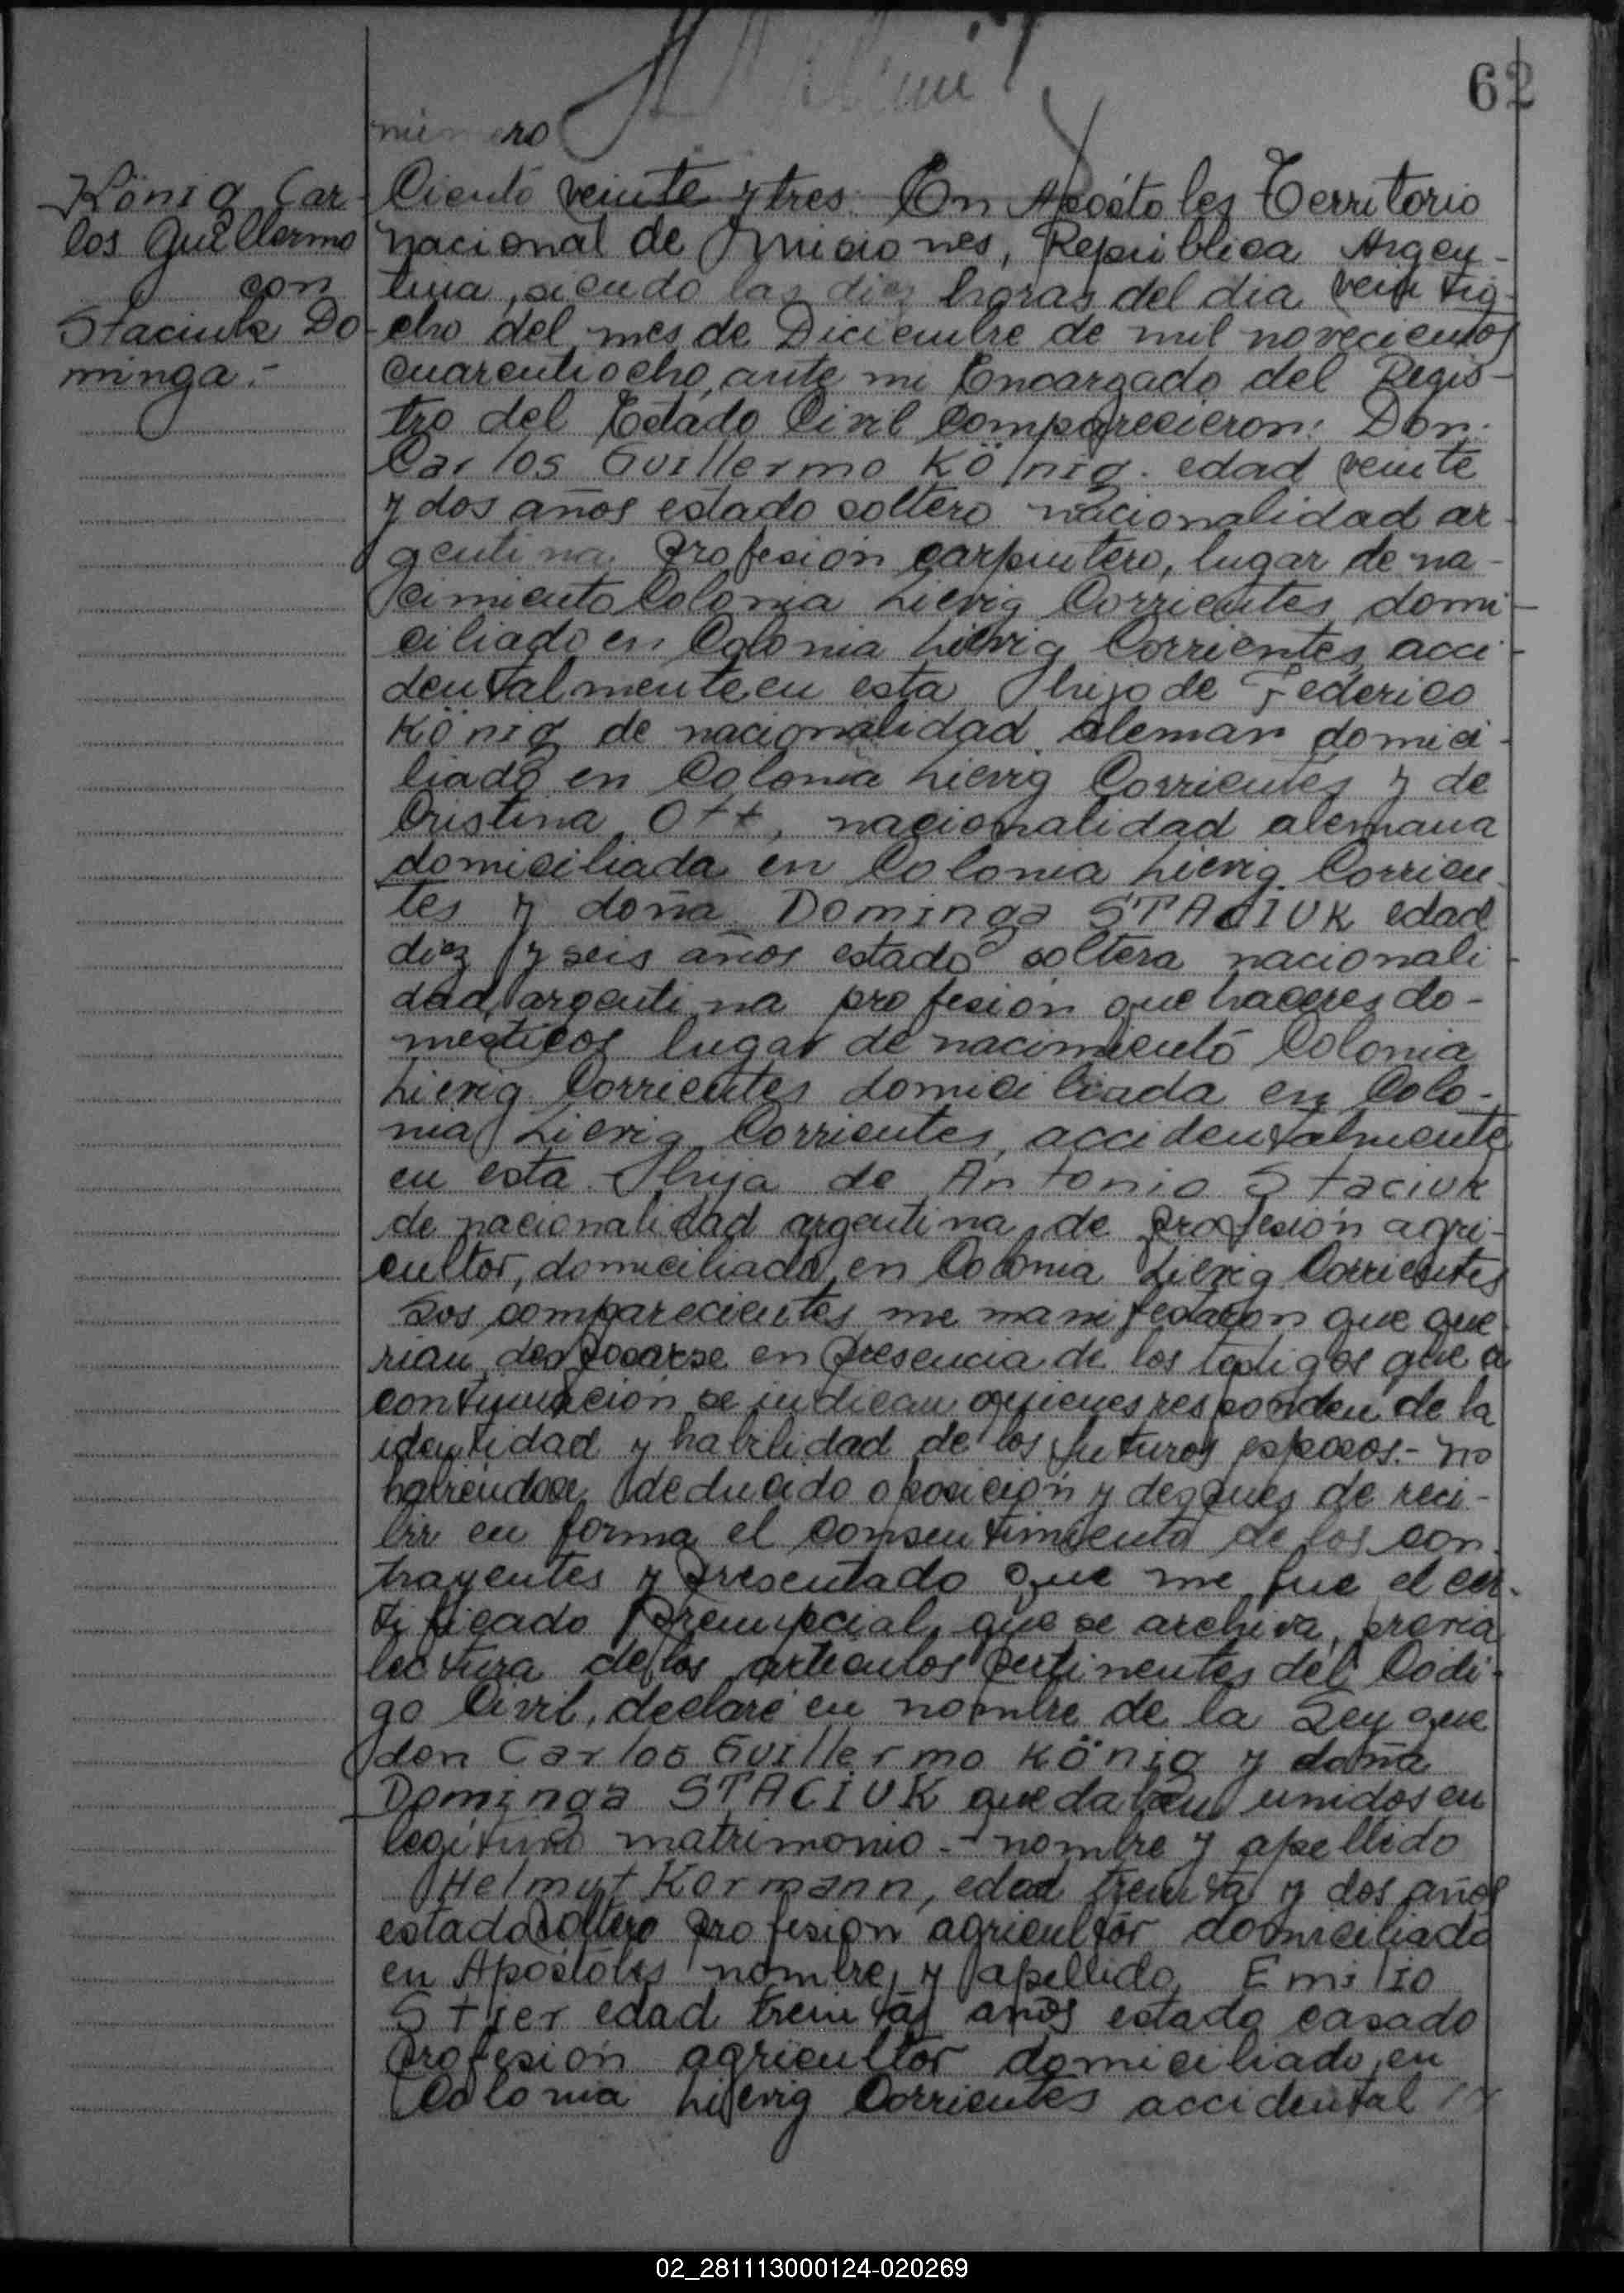 62
número
König Car-
los Guillermo
con
Staciuk Do-
minga.-
Ciento veinte y tres. En Apóstoles Territorio
nacional de Misiones, República Argen-
tina, siendo las diez horas del dia veintio-
cho del mes de Diciembre de mil novecientos
cuarentiocho, ante mi Encargado del Regis-
tro del Estado Civil Comparecieron: Don.
Carlos Guillermo König. edad veinte
y dos años estado soltero nacionalidad ar-
gentina. Profesión carpintero, lugar de na-
cimiento Colonia Lievig Corrientes domi-
ciliado en Colonia Lievig Corrientes, acci-
dentalmente en esta hijo de Federico
König de nacionalidad aleman domici-
liado en Colonia Lievig Corrientes y de
Cristina Ott, nacionalidad alemana
domiciliada en Colonia Lievig Corrien-
tes y doña Dominga STACIUK edad
diez y seis años estado soltera nacionali-
dad argentina profesión quehaceres do-
mesticos lugar de nacimiento Colonia
Lievig Corrientes domiciliada en Colo-
nia Lievig Corrientes, accidentalmente
en esta hija de Antonio Staciuk
de nacionalidad argentina, de profesión agri-
cultor, domiciliado en Colonia Lievig Corrientes
Los comparecientes me manifestaron que que-
rian desposarse en presencia de los testigos que a
continuación se indican quienes responden de la
identidad y habilidad de los futuros esposos.- no
habiendose deducido oposición y despues de reci-
bir en forma el consentimiento de los con-
trayentes y presentado que me fue el cer-
tificado prenupcial, que se archiva, previa
lectura de los articulos pertinentes del Codi-
go Civil, declaré en nombre de la Ley que
don Carlos Guillermo König y doña
Dominga STACIUK quedaban unidos en
legitimo matrimonio.- nombre y apellido
Helmut Kormann, edad treinta y dos años
estado soltero profesion agricultor domiciliado
en Apóstoles nombre y apellido Emilio
Stier edad treinta años estado casado
profesión agricultor domiciliado en
Colonia Lievig Corrientes accidental
02_281113000124-020269